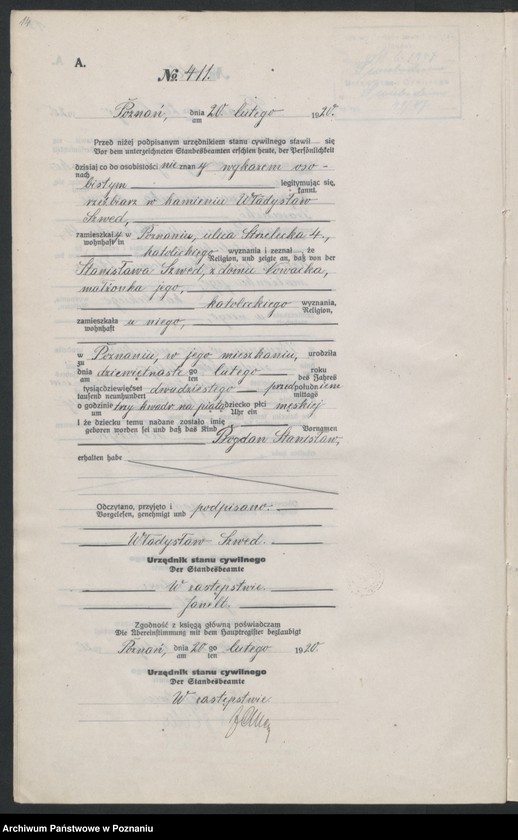 14
A.
№ 411.
Poznań, dnia 20 lutego 1920.
am
Przed niżej podpisanym urzędnikiem stanu cywilnego stawił się
Vor dem unterzeichneten Standesbeamten erschien heute, der Persönlichkeit
dzisiaj co do osobistości nie znany wykazem oso-
nach
bistym legitymując się,
kannt.
rzeźbiarz w kamieniu Władysław
Szwed,
zamieszkały w Poznaniu, ulica Strzelecka 4.,
wohnhaft in
katolickiego wyznania i zeznał że
Religion, und zeigte an, daß von der
Stanisława Szwed, z domu Nowacka,
małżonka jego,
katolickiego wyznania,
Religion,
zamieszkała u niego,
wohnhaft
w Poznaniu, w jego mieszkaniu, urodziła
zu
dnia dziewiętnastego lutego roku
am ten des Jahres
tysiącdziewięćset dwudziestego przed południem
tausend neunhundert mittags
o godzinie trzy kwadr na piątą dziecko płci męskiej
um Uhr ein
i że dziecku temu nadane zostało imię
geboren worden sei und daß das Kind Vornamen
Bogdan Stanisław,
erhalten habe
Odczytano, przyjęto i podpisano.
Vorgelesen, genehmigt und
Władysław Szwed.
Urzędnik stanu cywilnego
Der Standesbeamte
W zastępstwie
Zgodność z księgą główną poświadczam
Die Übereinstimmung mit dem Hauptregister beglaubigt
Poznań, dnia 20 go lutego 1920.
am ten
Urzędnik stanu cywilnego
Der Standesbeamte
W zastępstwie
Archiwum Państwowe w Poznaniu
Archiwum Państwowe w Poznaniu